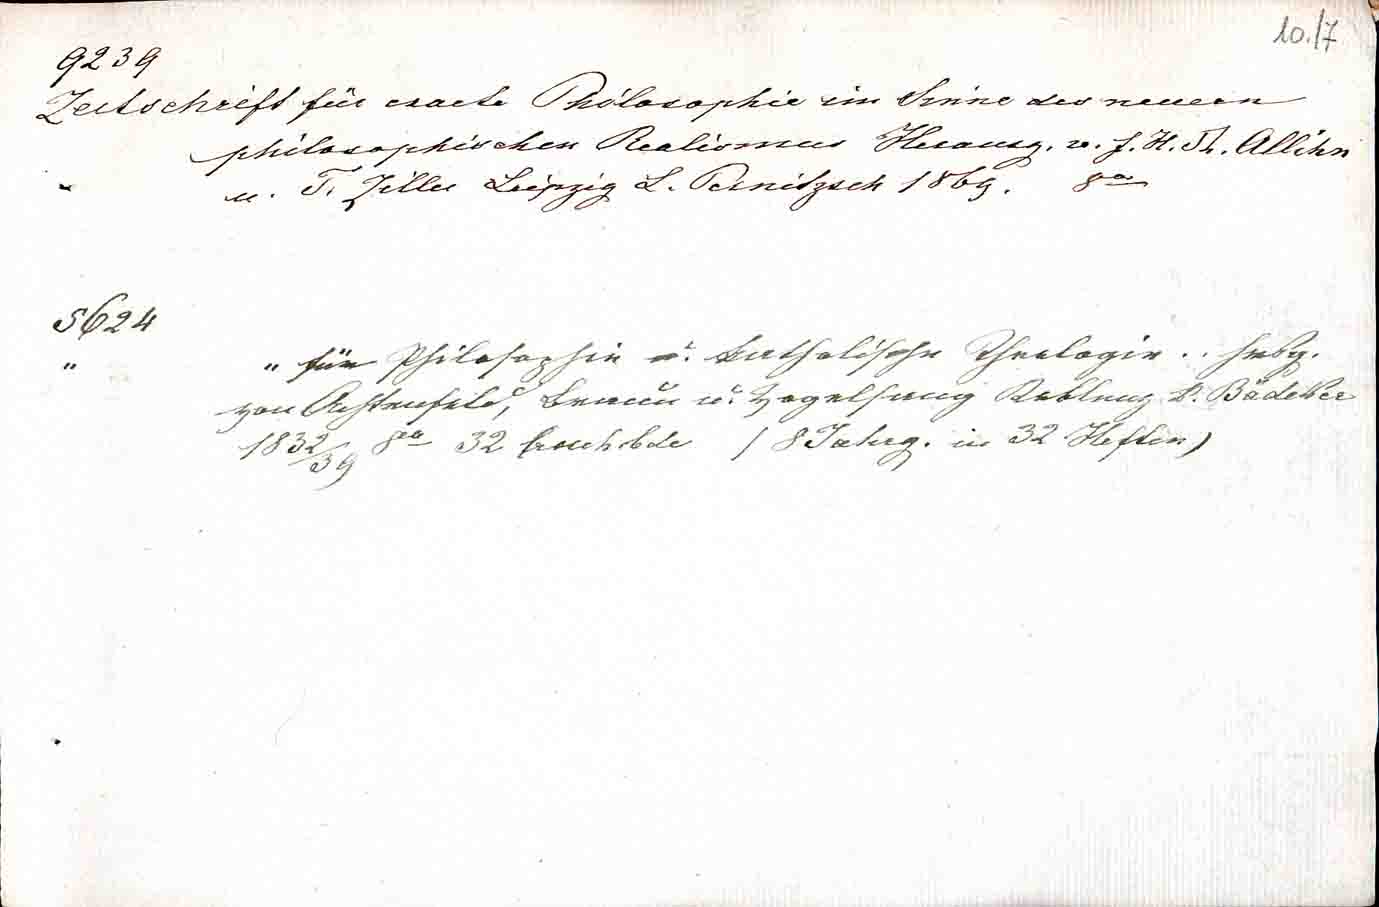 10./7
9239
Zeitschrift für exacte Philosophie im Sinne des neuern
philosophischen Realismus Herausg. v. F. H. Th. Allihn
u. T. Ziller Leipzig L. Pernitzsch 1869. 8°
5624
" " für Philosophie u. katholische Theologie .. hrsg.
von Achterfeld, Braun u. Vogelsang Koblenz K. Bädeker
1832/39 8° 32 brosch. bde (8 Jahrg. in 32 Heften)